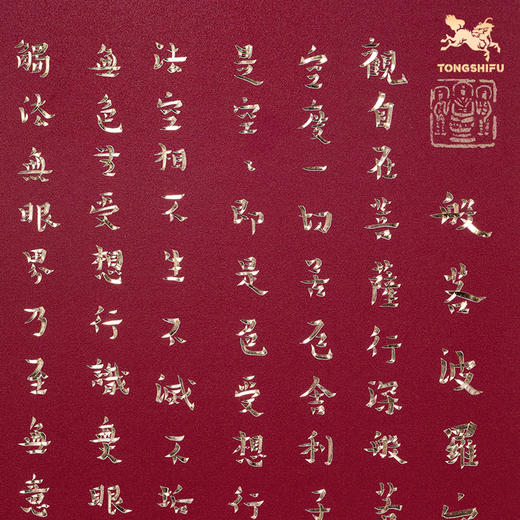 TONGSHIFU
般若波羅
觀自在菩薩行深般若
空度一切苦厄舍利子
是空、即是色受想行
法空相不生不滅不垢
無色無受想行識無眼
觸法無眼界乃至無意